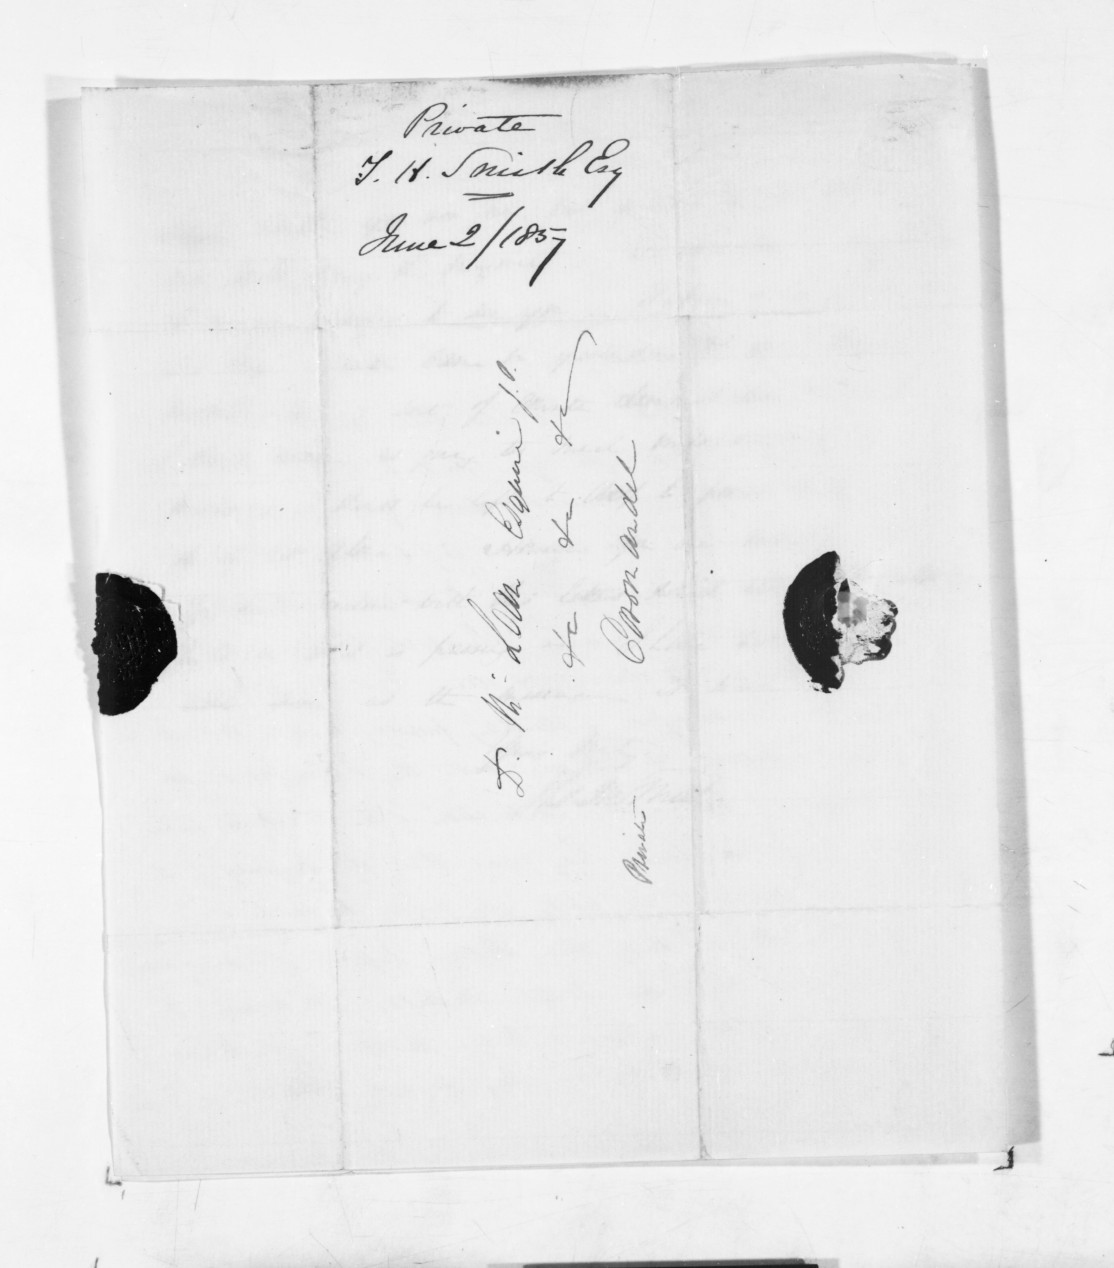 Private
T. H. Smith Esq
June 2/1857
D. McLean Esquire J.P.
&c &c &c
Coromandel
Private